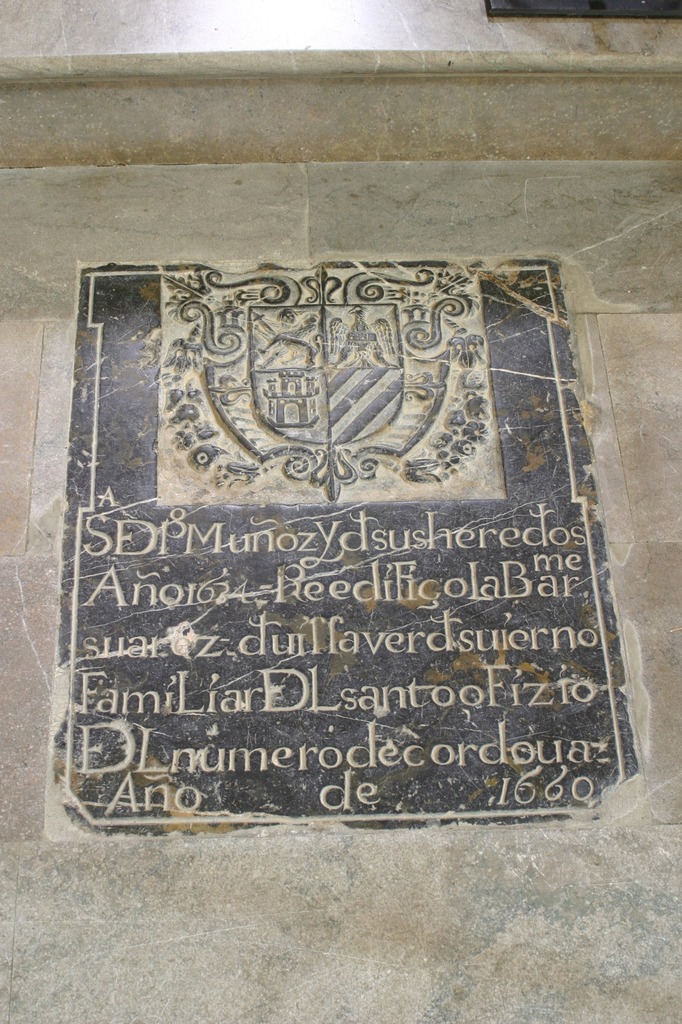 Sᴬ ÐPº Muñoz y dsus heredos
Año 1634 Reedifiçola Barme
suarez d uillaverd su ierno
FamiLiar ÐL santo oFizio
ÐL numero de cordoua
Año de 1660